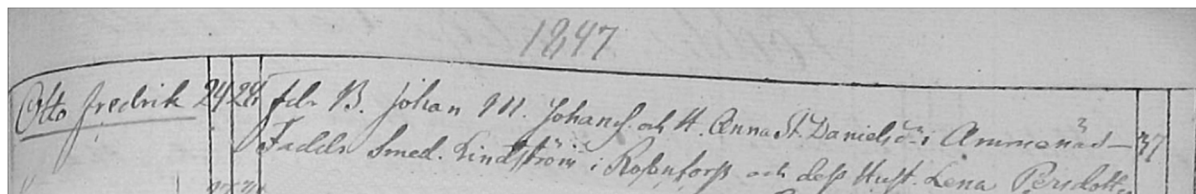 1847
Otto Fredrik 24 28 fdr B. Johan M. Johans. och H. Anna St. Danielsdr i Ammenäs 37
Faddr Smed. Lindström i Rosenforss och dess Hust. Lena Persdottr